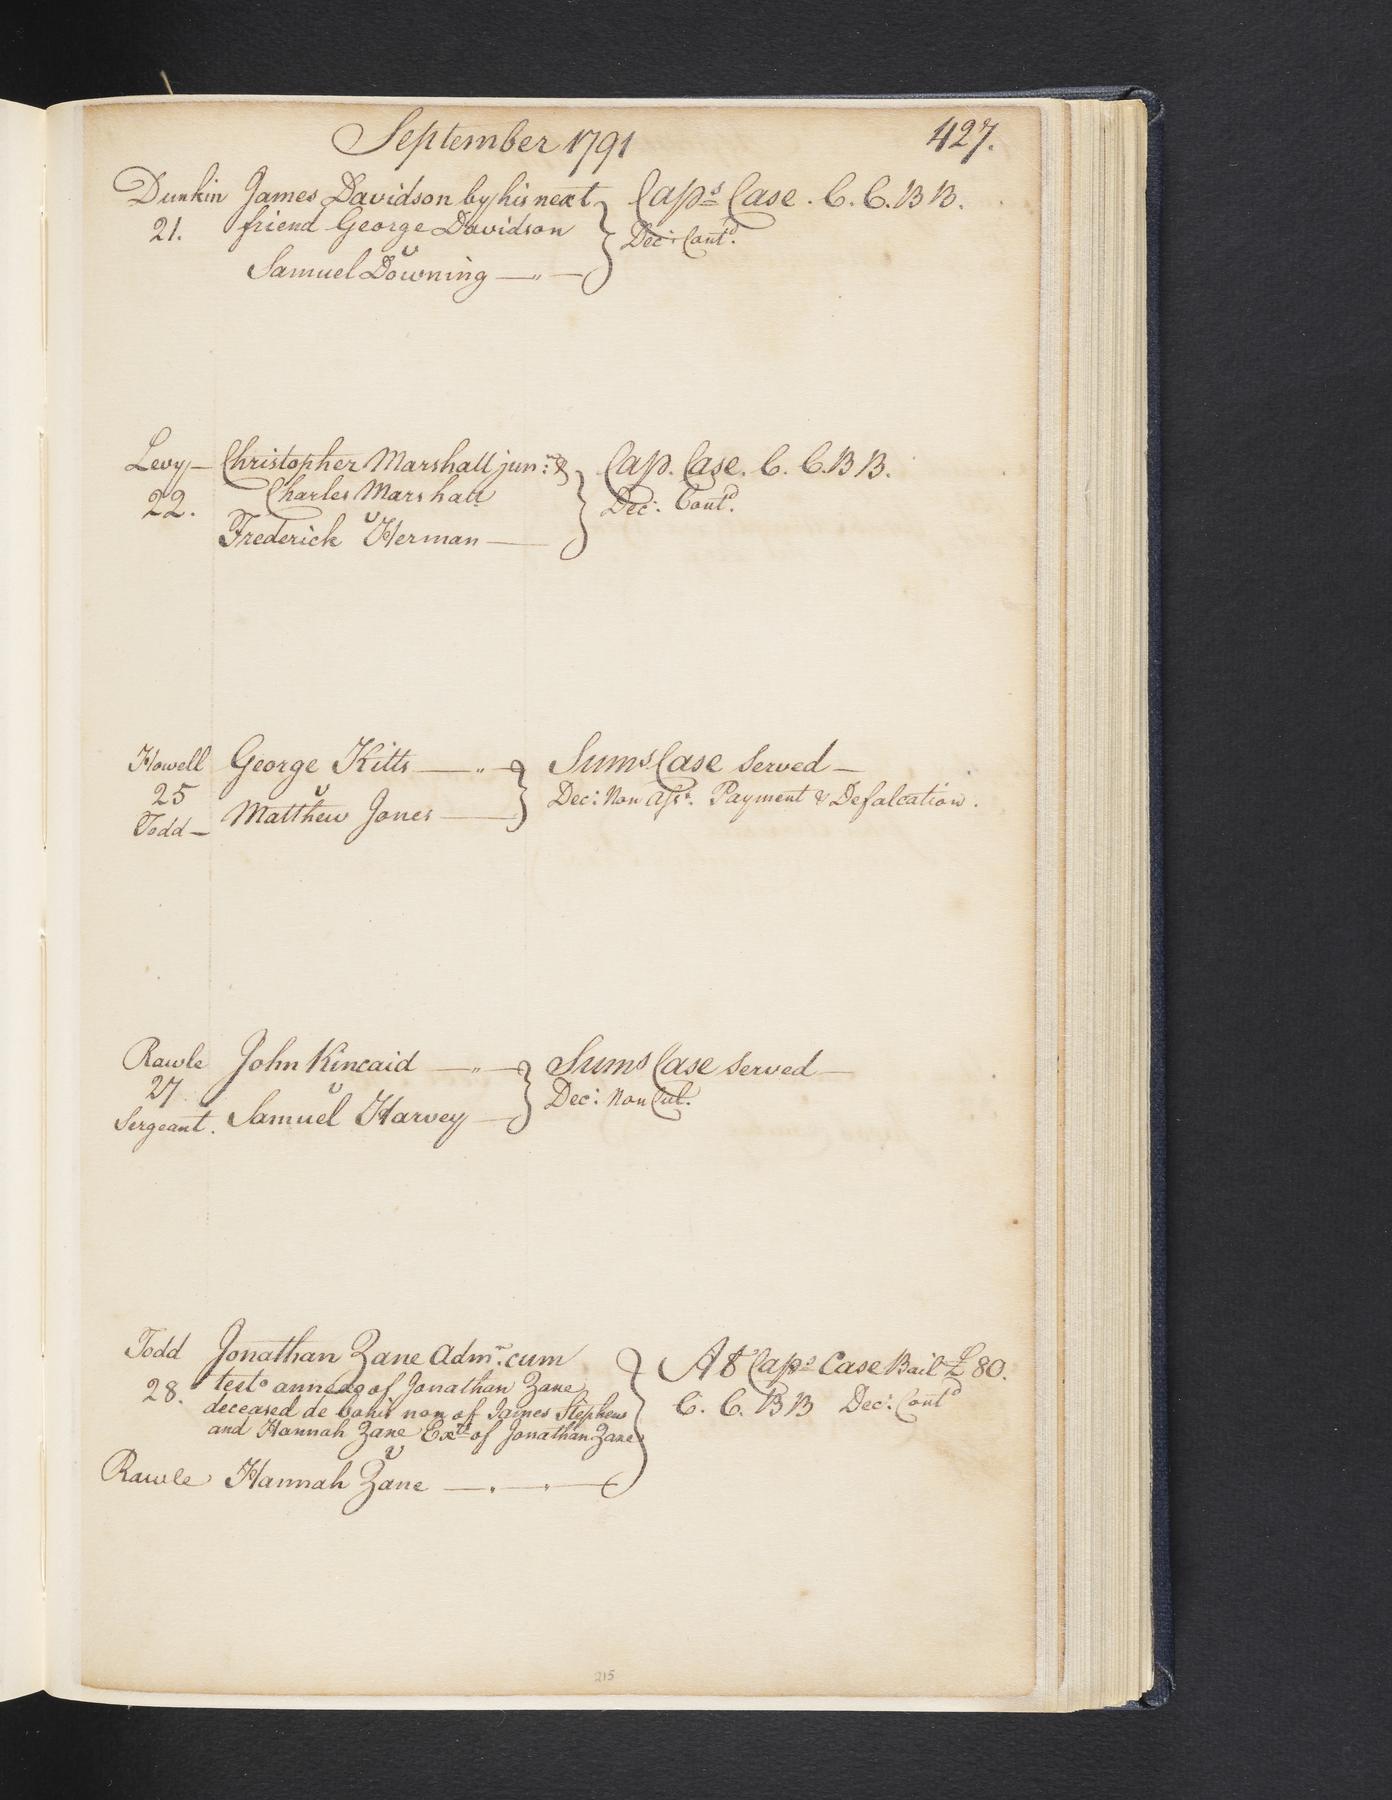 September 1791
427.
Dunkin James Davidson by his next Caps Case. C. C. B B.
21. friend George Davidson Dec: Contd.
v
Samuel Downing
Levy Christopher Marshall junr: & Cap. Case. C. C. B B.
22. Charles Marshall Dec: Contd.
v
Frederick Herman
Howell George Kitts Sums Case Served
25 v Dec: Non Asst. Payment & Defalcation.
Todd Matthew Jones
Rawle John Kincaid Sums Case Served
27 v Dec: Non Cul.
Sergeant. Samuel Harvey
Todd Jonathan Zane Admr. cum At Caps Case Bail £80.
28. testo annexo of Jonathan Zane C. C. B B Dec: Contd
deceased de bonis non of James Stephens
and Hannah Zane Exrs of Jonathan Zane
v
Rawle Hannah Zane
215